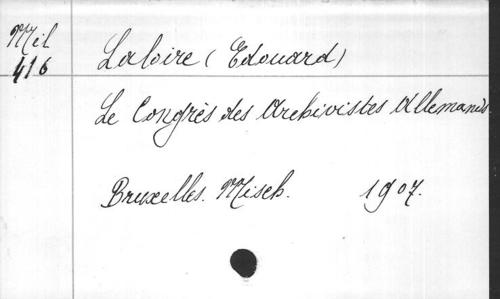 Mil
416
Laloire (Edouard)
Le Congrès des Archivistes Allemands.
Bruxelles. Misch. 1907.